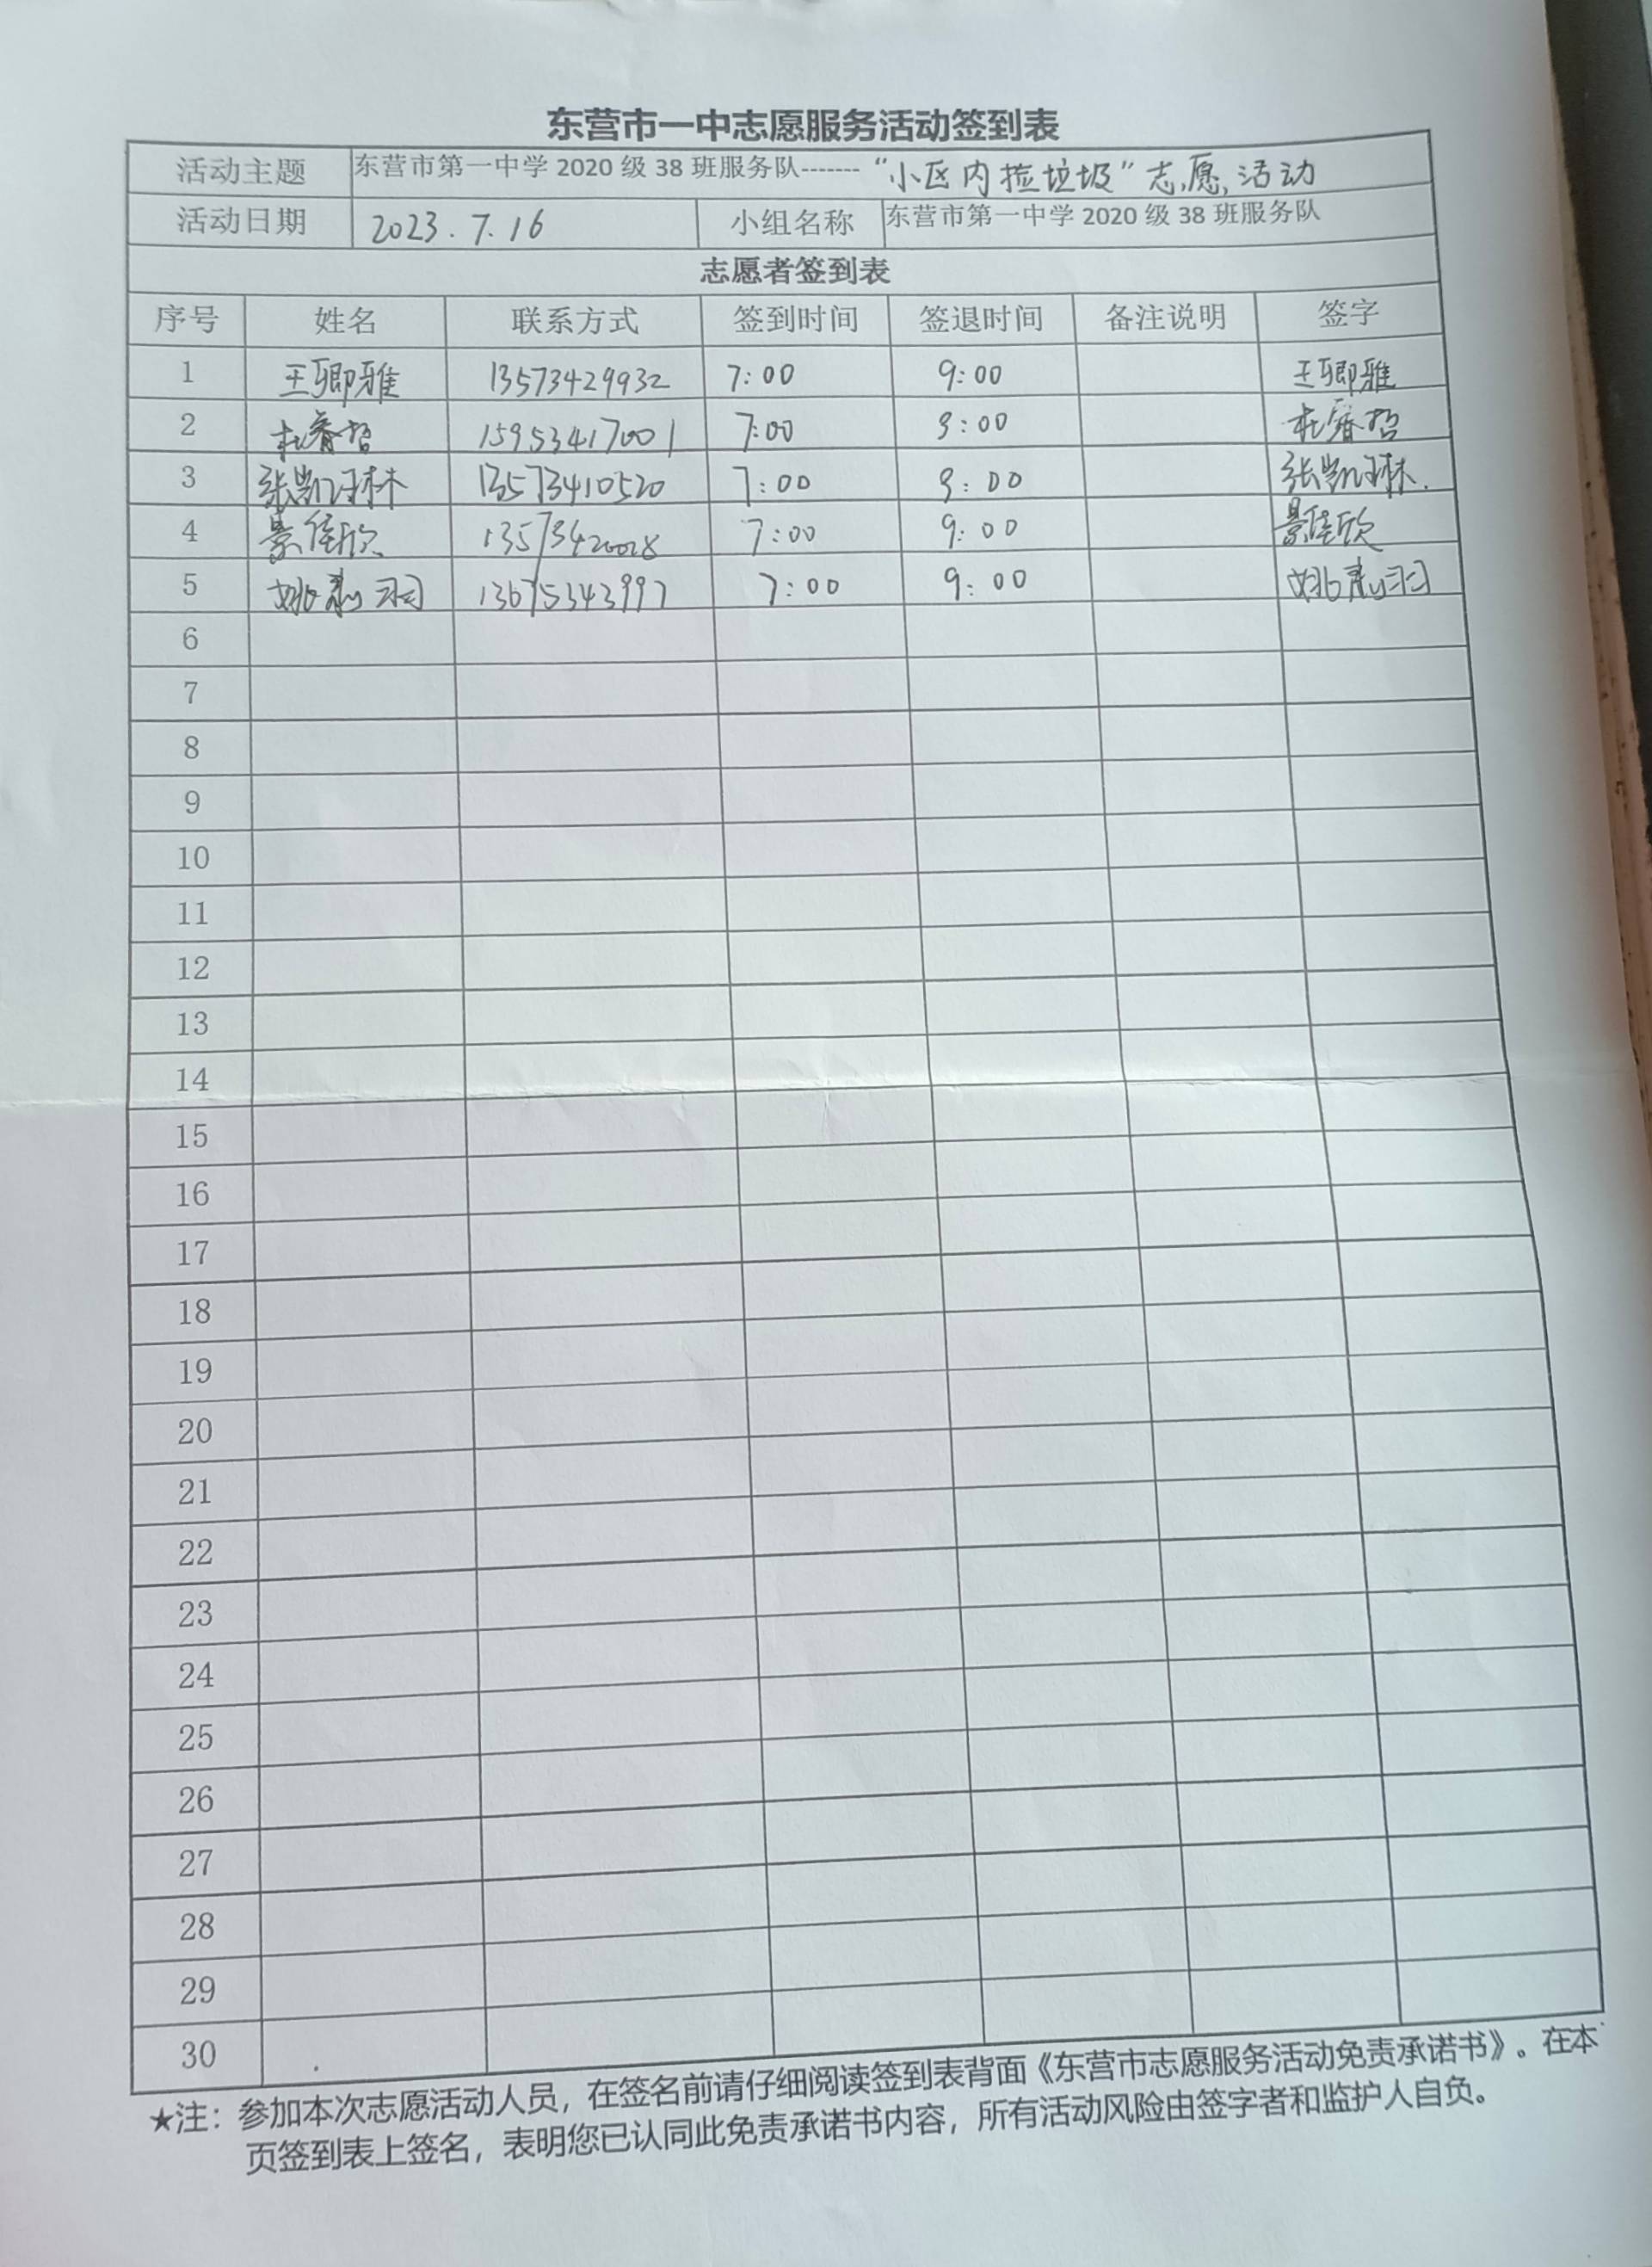 东营市一中志愿服务活动签到表
活动主题 东营市第一中学 2020 级 38 班服务队------- “小区内捡垃圾”志愿活动
活动日期 2023.7.16 小组名称 东营市第一中学 2020 级 38 班服务队
志愿者签到表
序号 姓名 联系方式 签到时间 签退时间 备注说明 签字
1 王卿雅 13573429932 7:00 9:00 王卿雅
2 杜睿哲 15953417001 7:00 9:00 杜睿哲
3 张凯琳 13573410520 7:00 9:00 张凯琳.
4 景佳欣 13573420028 7:00 9:00 景佳欣
5 13675343997 7:00 9:00
6
7
8
9
10
11
12
13
14
15
16
17
18
19
20
21
22
23
24
25
26
27
28
29
30
★注：参加本次志愿活动人员，在签名前请仔细阅读签到表背面《东营市志愿服务活动免责承诺书》。在本
页签到表上签名，表明您已认同此免责承诺书内容，所有活动风险由签字者和监护人自负。